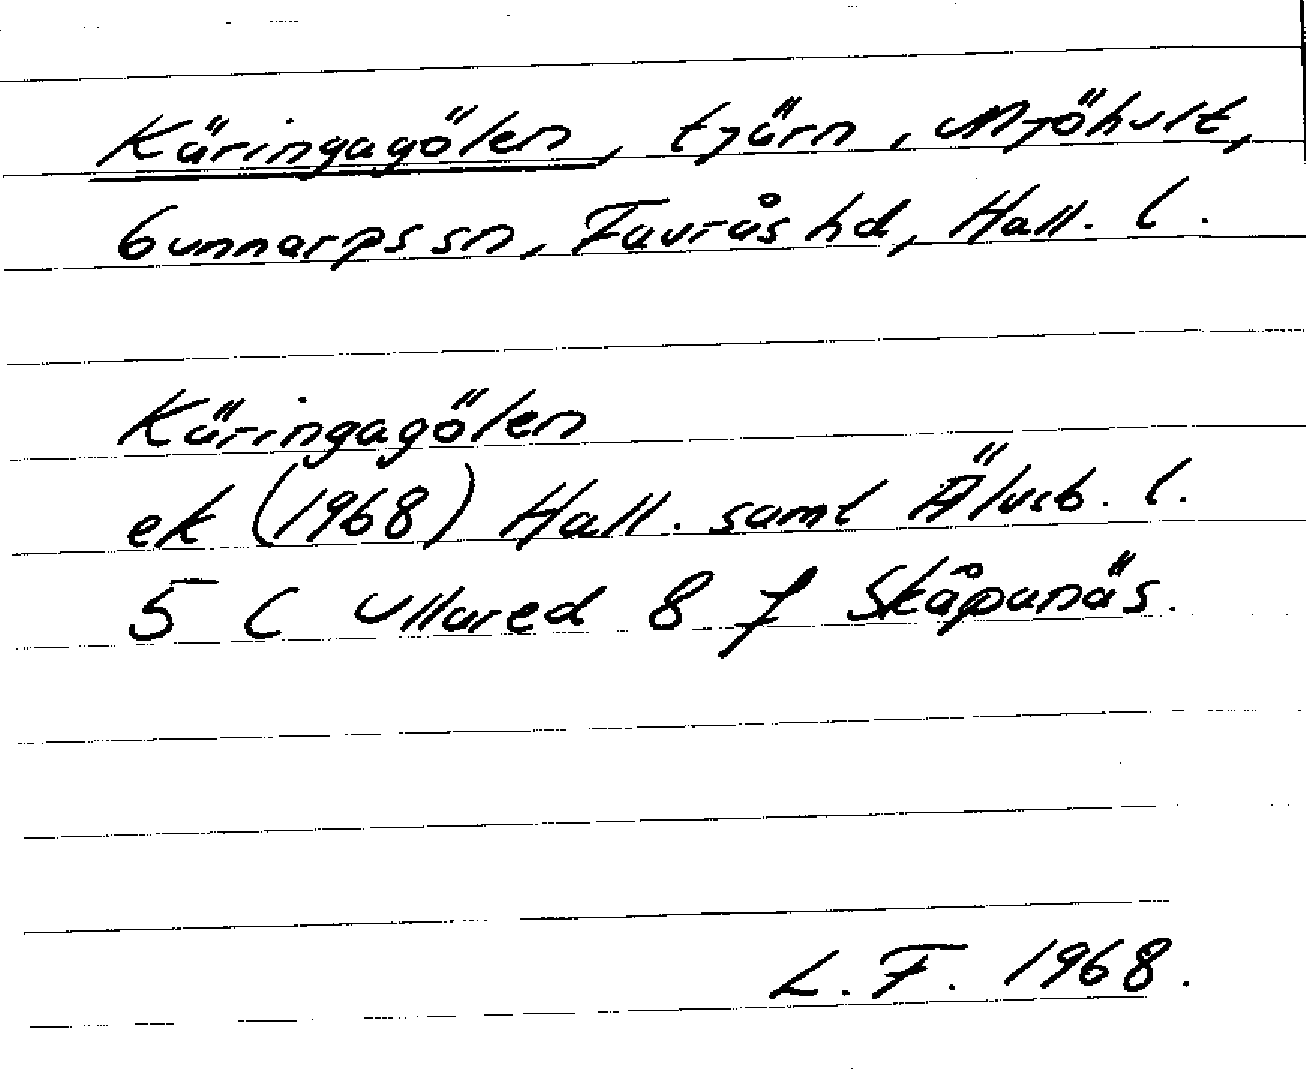 Käringagölen, tjärn, Mjöhult,
Gunnarps sn, Faurås hd, Hall. l.
Käringagölen
ek (1968) Hall. samt Älvsb. l.
5 C Ullared 8 f Skåpanäs.
L. F. 1968.